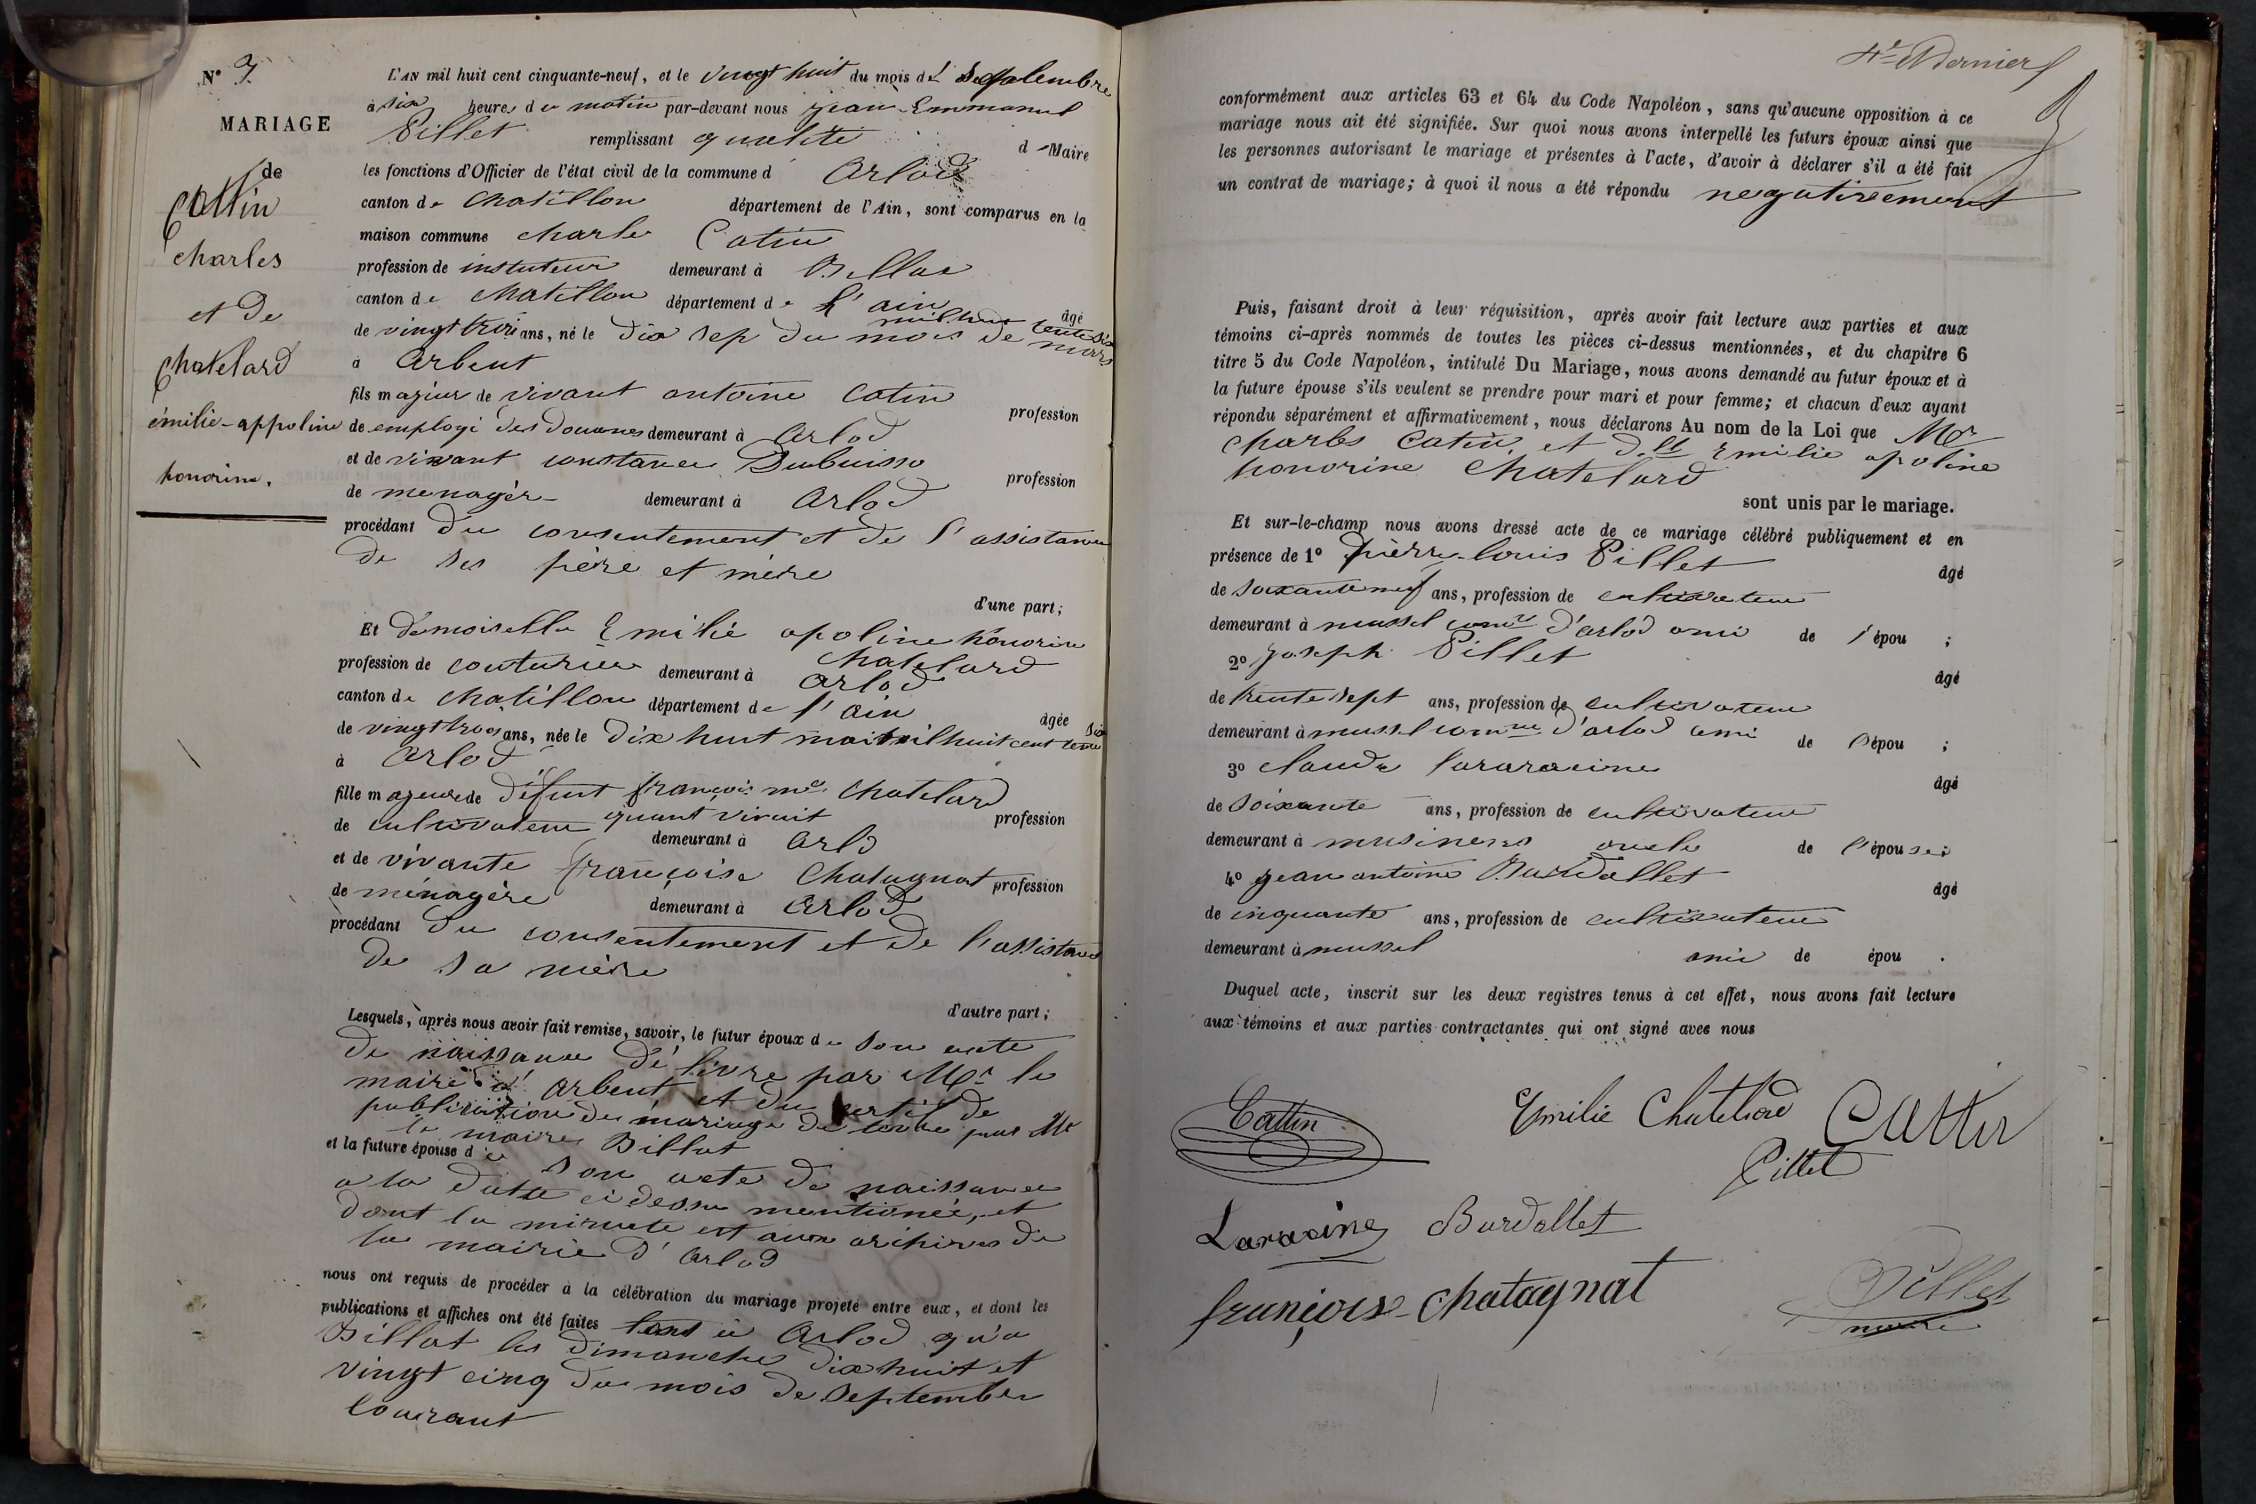 N° 7
MARIAGE
de
Cattin
Charles
et de
Chatelard
émilie-appoline
honorine.
L'AN mil huit cent cinquante-neuf, et le vingt huit du mois de Septembre
à six heures du matin par-devant nous jean Emmanuel
Pillet remplissant qualité de Maire
les fonctions d'Officier de l'état civil de la commune d' Arlod
canton de Chatillon département de l'Ain, sont comparus en la
maison commune charles Catin
profession de instuteur demeurant à Billiat
canton de Chatillon département de l'ain âgé
de vingt trois ans, né le dix sep du mois de mars mil huit cent trente six
à Arbent
fils majeur de vivant antoine Catin profession
de employé des Douanes demeurant à Arlod
et de vivant constance Dubuisso profession
de menagèr demeurant à Arlod
procédant du consentement et de l'assistance
de ses père et mère
d'une part;
Et demoiselle Emilie apoline honorine
Chatelard
profession de couturière demeurant à Arlod
canton de Chatillon département de l'ain âgée
de vingt trois ans, née le dix huit mai mil huit cent trente six
à Arlod
fille majeure de défunt françois m.e Chatelard
de cultivateur quant vivait profession
demeurant à Arlod
et de vivante françoise Chatagnat profession
de ménagère demeurant à Arlod
procédant du consentement et de l'assistance
de sa mère
d'autre part;
Lesquels, après nous avoir fait remise, savoir, le futur époux de son acte
de naissance délivré par Mr le
maire d'Arbent et du certif de
publication de mariage de par Mr
le maire Billiat
et la future épouse de son acte de naissance
a la datte ci dessu mentionée, et
dont la minute est aux archives de
la mairie d'Arlod
nous ont requis de procéder à la célébration du mariage projeté entre eux, et dont les
publications et affiches ont été faites tant à Arlod qu'a
Billiat les dimanches dix huit et
vingt cinq du mois de September
courant
4e & Dernier
conformément aux articles 63 et 64 du Code Napoléon, sans qu'aucune opposition à ce
mariage nous ait été signifiée. Sur quoi nous avons interpellé les futurs époux ainsi que
les personnes autorisant le mariage et présentes à l'acte, d'avoir à déclarer s'il a été fait
un contrat de mariage; à quoi il nous a été répondu negativement
Puis, faisant droit à leur réquisition, après avoir fait lecture aux parties et aux
témoins ci-après nommés de toutes les pièces ci-dessus mentionnées, et du chapitre 6
titre 5 du Code Napoléon, intitulé Du Mariage, nous avons demandé au futur époux et à
la future épouse s'ils veulent se prendre pour mari et pour femme; et chacun d'eux ayant
répondu séparément et affirmativement, nous déclarons Au nom de la Loi que Mr
Charles Catin, et d.lle Emilie apoline
honorine Chatelard
sont unis par le mariage.
Et sur-le-champ nous avons dressé acte de ce mariage célébré publiquement et en
présence de 1° pierre-louis Pillet âgé
de soixante neuf ans, profession de cultivateur
demeurant à mussel come d'arlod ami de l'épou ;
2° joseph Pillet âgé
de trente sept ans, profession de cultivateur
demeurant à mussel comune d'arlod ami de l'épou ;
3° claude âgé
de soixante ans, profession de cultivateur
demeurant à musinens oncle de l'épouse;
4° jean antoine Burdallet âgé
de cinquante ans, profession de cultivateur
demeurant à mussel ami de épou .
Duquel acte, inscrit sur les deux registres tenus à cet effet, nous avons fait lecture
aux témoins et aux parties contractantes qui ont signé avec nous
Cattin Emilie Chatelard Cattin
Pillet
Laracine Burdallet
françoise Chatagnat
Pillet
maire